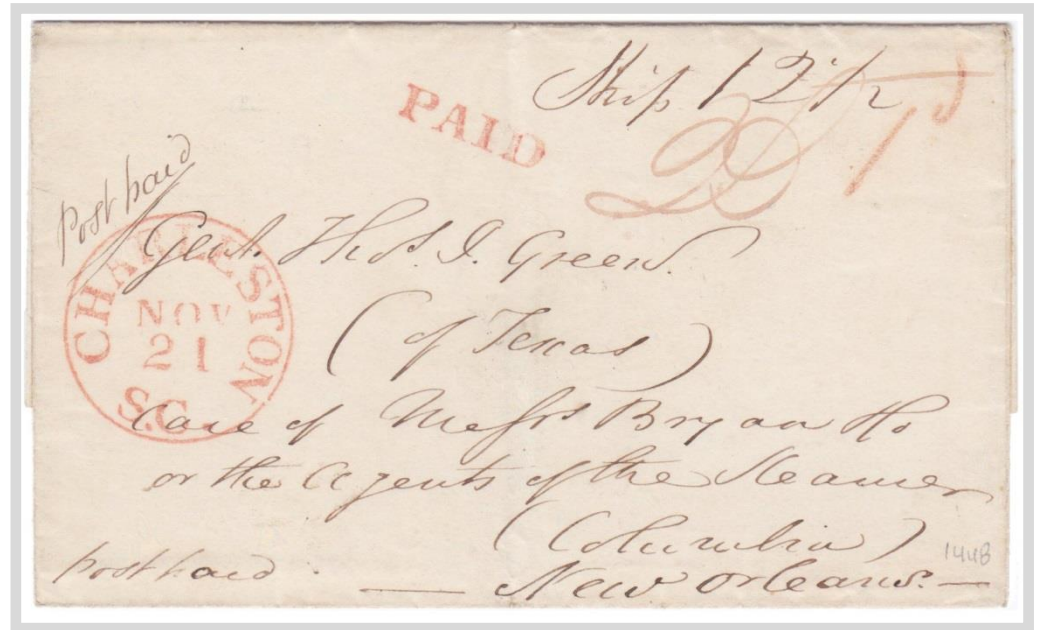 Ship 12 1/2
PAID
Post paid
CHARLESTON
NOV
21
S.C.
Genl. Thos. J. Green.
(of Texas)
Care of Messrs Bryan
or the Agents of the Steamer
(Columbia)
New Orleans.
post paid.
1448